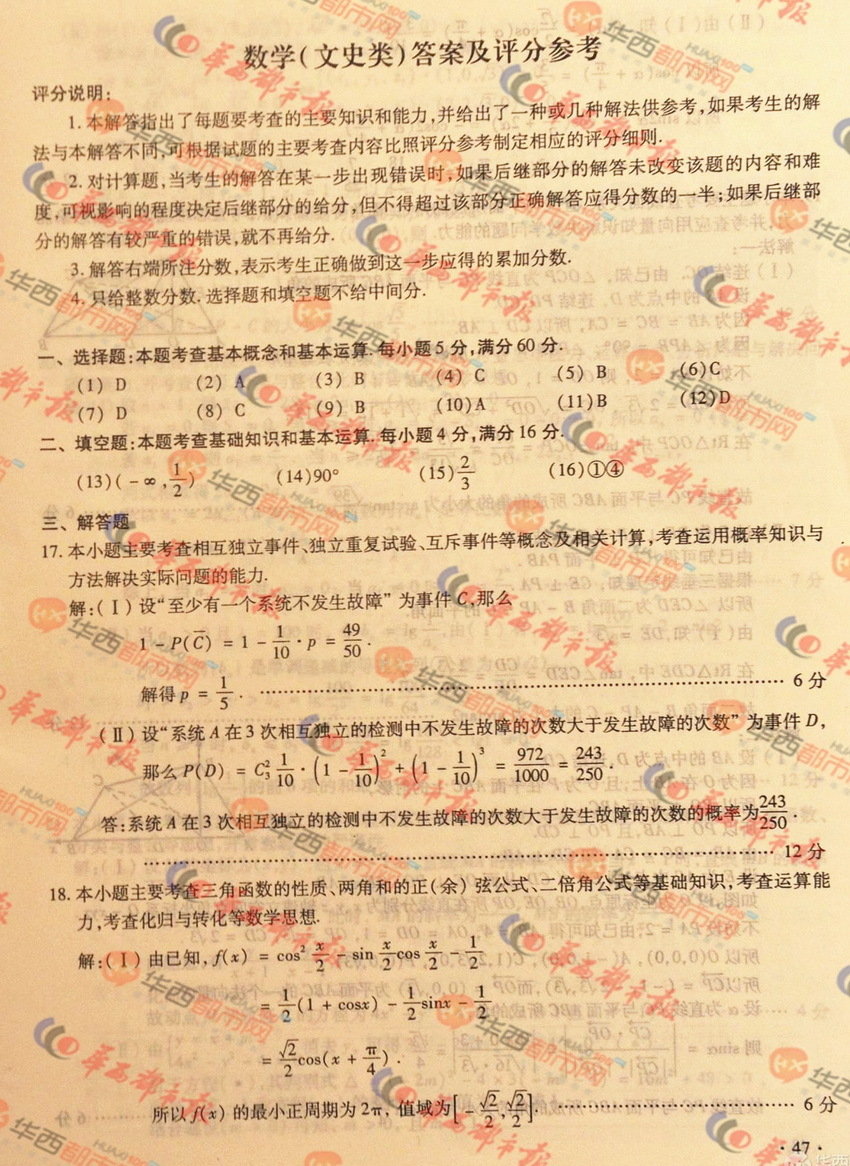 数学(文史类)答案及评分参考
评分说明:
1. 本解答指出了每题要考查的主要知识和能力,并给出了一种或几种解法供参考,如果考生的解
法与本解答不同,可根据试题的主要考查内容比照评分参考制定相应的评分细则.
2. 对计算题,当考生的解答在某一步出现错误时,如果后继部分的解答未改变该题的内容和难
度,可视影响的程度决定后继部分的给分,但不得超过该部分正确解答应得分数的一半;如果后继部
分的解答有较严重的错误,就不再给分.
3. 解答右端所注分数,表示考生正确做到这一步应得的累加分数.
4. 只给整数分数. 选择题和填空题不给中间分.
一、选择题:本题考查基本概念和基本运算. 每小题 5 分,满分 60 分.
(1) D (2) A (3) B (4) C (5) B (6) C
(7) D (8) C (9) B (10) A (11) B (12) D
二、填空题:本题考查基础知识和基本运算. 每小题 4 分,满分 16 分.
(13) (-∞, 1/2) (14) 90° (15) 2/3 (16) ①④
三、解答题
17. 本小题主要考查相互独立事件、独立重复试验、互斥事件等概念及相关计算,考查运用概率知识与
方法解决实际问题的能力.
解:(Ⅰ) 设“至少有一个系统不发生故障”为事件 C,那么
1 - P(C̄) = 1 - 1/10 · p = 49/50 .
解得 p = 1/5 . ………… 6 分
(Ⅱ) 设“系统 A 在 3 次相互独立的检测中不发生故障的次数大于发生故障的次数”为事件 D,
那么 P(D) = C₃² 1/10 · (1 - 1/10)² + (1 - 1/10)³ = 972/1000 = 243/250 .
答:系统 A 在 3 次相互独立的检测中不发生故障的次数大于发生故障的次数的概率为 243/250 .
………… 12 分
18. 本小题主要考查三角函数的性质、两角和的正(余)弦公式、二倍角公式等基础知识,考查运算能
力,考查化归与转化等数学思想.
解:(Ⅰ) 由已知, f(x) = cos² x/2 - sin x/2 cos x/2 - 1/2
= 1/2 (1 + cosx) - 1/2 sinx - 1/2
= √2/2 cos(x + π/4) .
所以 f(x) 的最小正周期为 2π, 值域为 [-√2/2, √2/2]. ………… 6 分
· 47 ·
华西都市报
华西都市网
HUAXI100